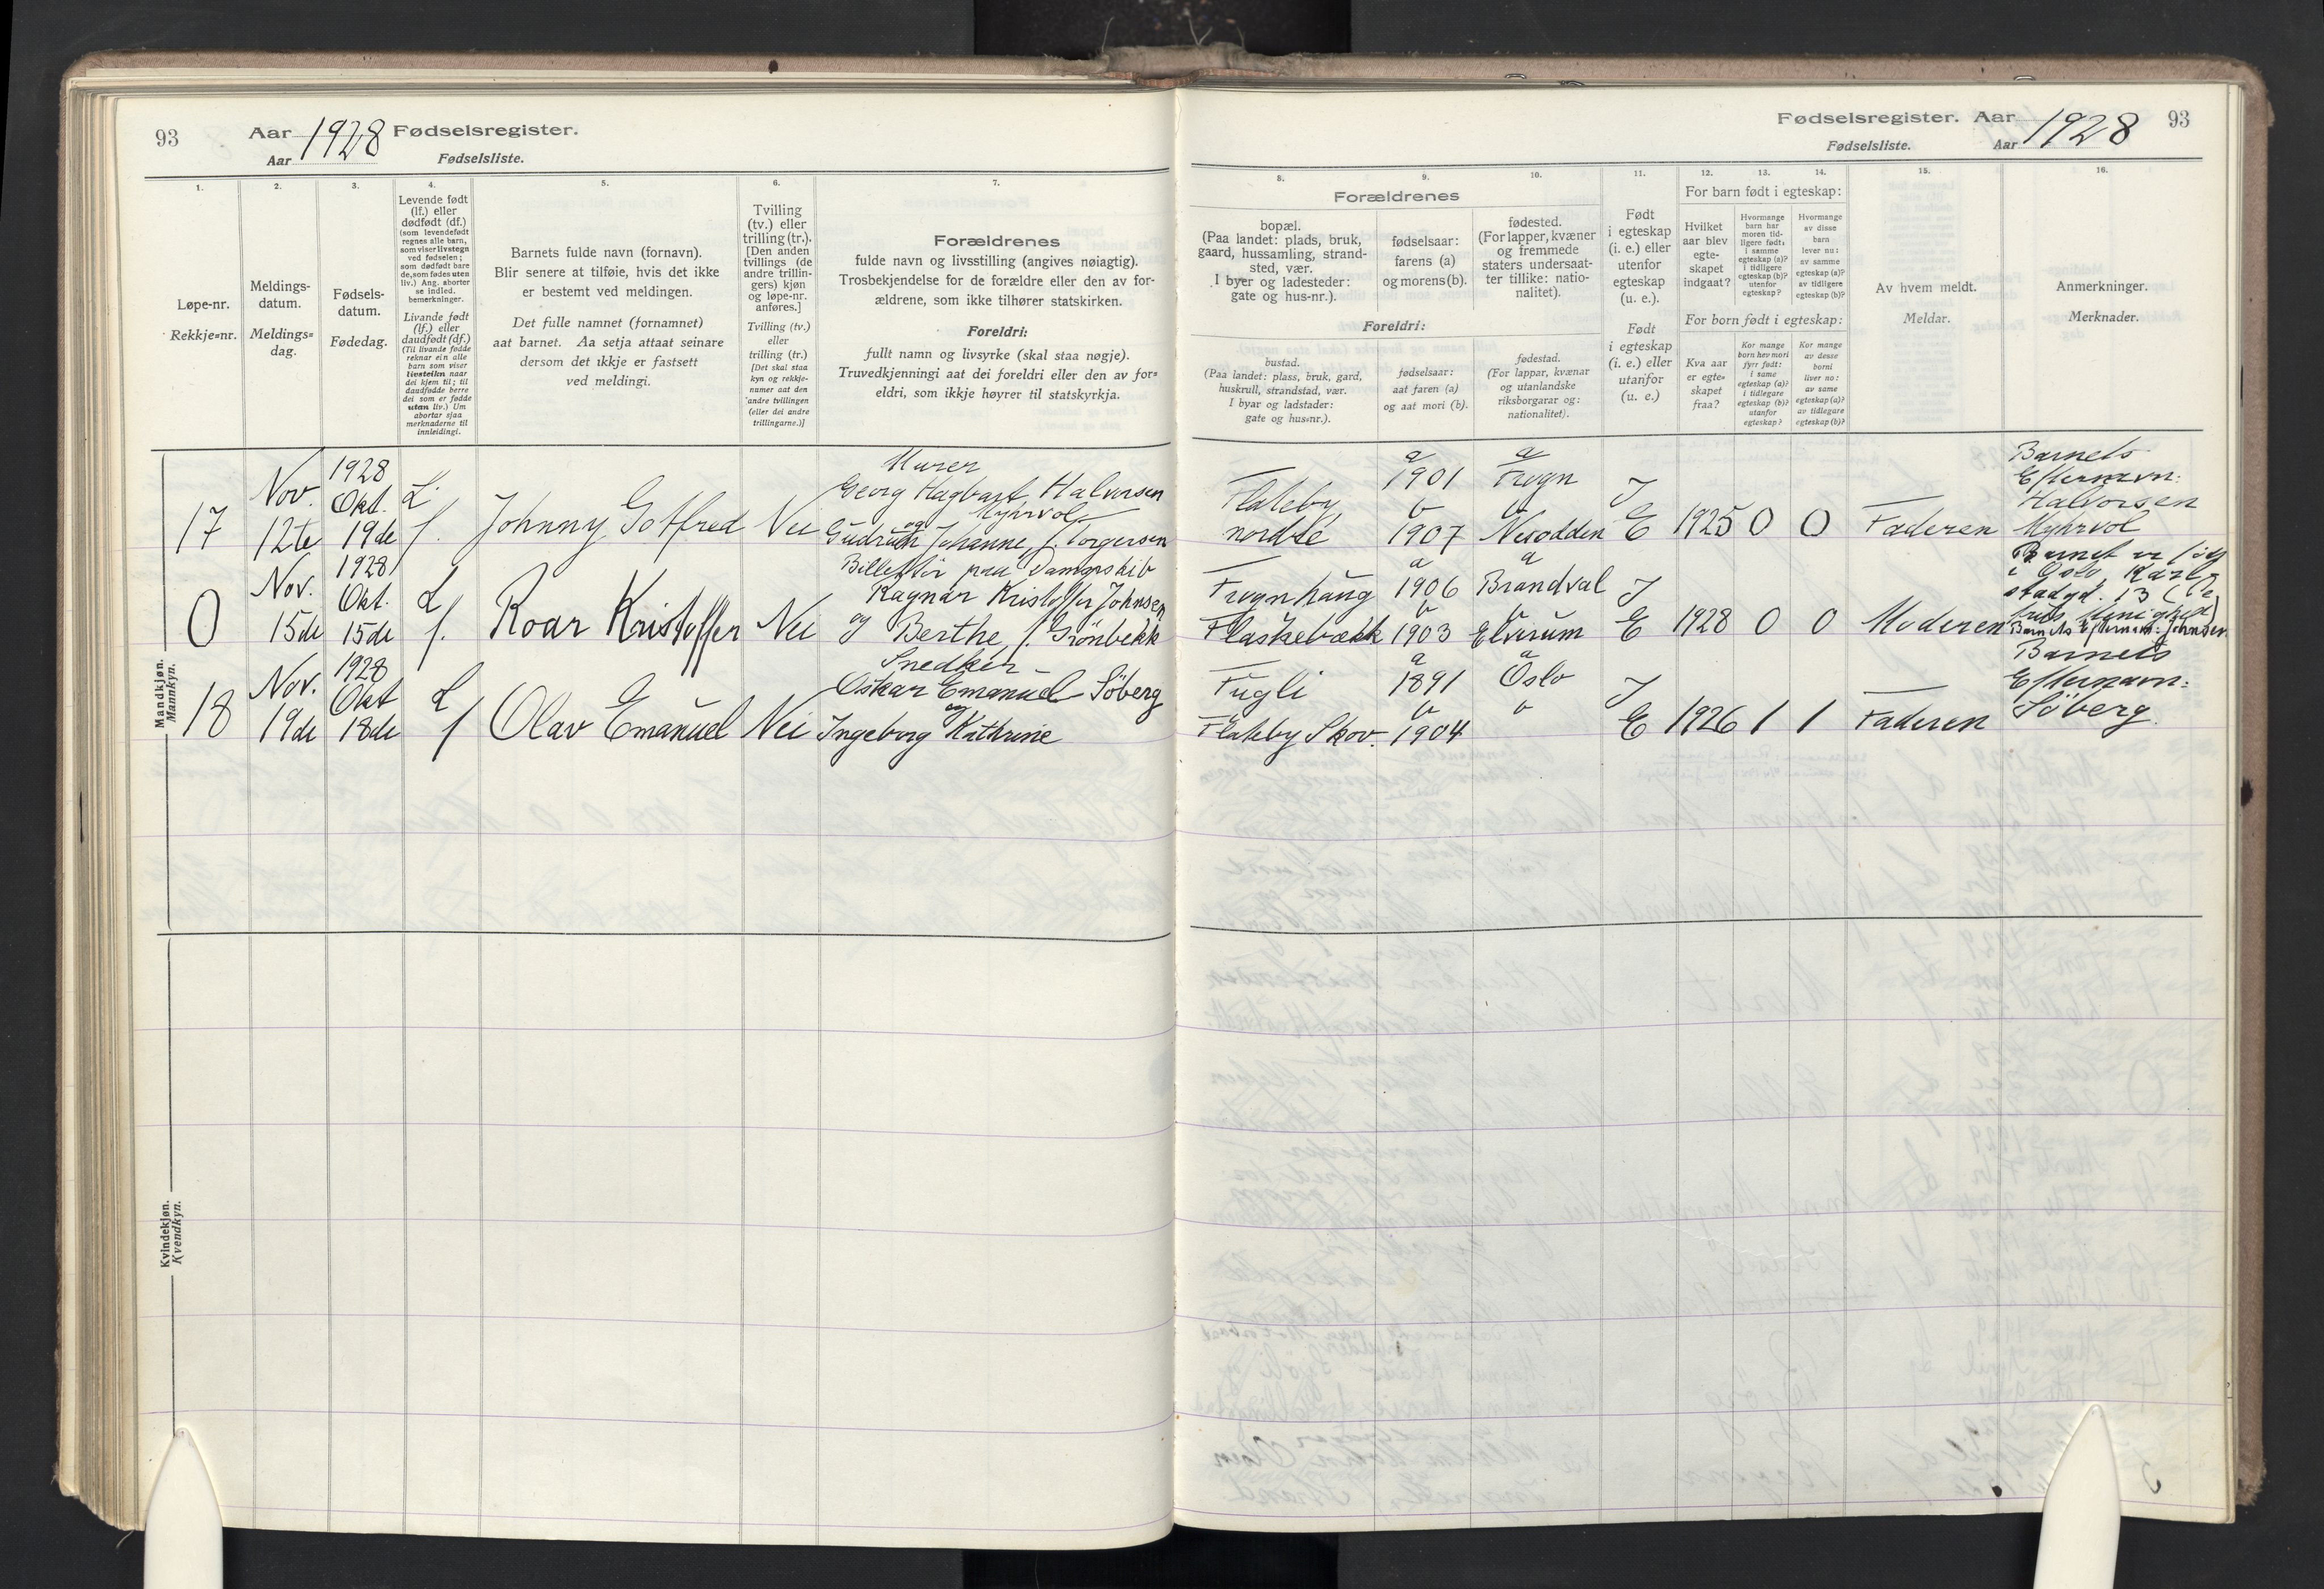 93
Aar 1928 Fødselsregister.
Aar
Fødselsliste.
1.
Løpe-nr.
Rekkje=nr.
2.
Meldings-
datum.
Meldings=
dag.
3.
Fødsels-
datum.
Fødedag.
4.
Levende født
(lf.) eller
dødfødt (df.)
(som levendefødt
regnes alle barn,
som viser livstegn
ved fødselen;
som dødfødt bare
de, som fødes uten
liv.) Ang. aborter
se indled.
bemerkninger.
Livande født
(lf.) eller
daudfødt (df.)
(Til livande fødde
reknar ein alle
barn som viser
livsteikn naar
dei kjem til; til
daudfødde berre
dei som er fødde
utan liv.) Um
abortar sjaa
merknaderne til
innleidingi.
5.
Barnets fulde navn (fornavn).
Blir senere at tilføie, hvis det ikke
er bestemt ved meldingen.
Det fulle namnet (fornamnet)
aat barnet. Aa setja attaat seinare
dersom det ikkje er fastsett
ved meldingi.
6.
Tvilling
(tv.) eller
trilling (tr.).
[Den anden
tvillings (de
andre trillin-
gers) kjøn
og løpe-nr.
anføres.]
Tvilling (tv.)
eller
trilling (tr.)
[Det skal staa
kyn og rekkje-
numer aat den
andre tvillingen
(eller dei andre
trillingarne.)]
7.
Forældrenes
fulde navn og livsstilling (angives nøiagtig).
Trosbekjendelse for de forældre eller den av for-
ældrene, som ikke tilhører statskirken.
Foreldri:
fullt namn og livsyrke (skal staa nøgje).
Truvedkjenningi aat dei foreldri eller den av for=
eldri, som ikkje høyrer til statskyrkja.
Mandkjøn.
Mannkyn.
17
Nov.
12te
1928
Okt.
19de
L.
f.
Johnny Gotfred
Nei
Murer
Georg Hagbart Halvorsen
Myhrvol
og
Gudrun Johanne, f. Torgersen
0
Nov.
15de
1928
Okt.
15de
L
f.
Roar Kristoffer
Nei
Billettør paa Dampskib
Ragnar Kristoffer Johnsen
og Berthe, f. Grönbekk
18
Nov.
19de
1928
Okt
18de
L
f
Olav Emanuel
Nei
Snedker
Oskar Emanuel Söberg
og
Ingeborg Kathrine
Kvindekjøn.
Kvendkyn.
Fødselsregister. Aar 1928 93
Fødselsliste. Aar
8.
Forældrenes
bopæl.
(Paa landet: plads, bruk,
gaard, hussamling, strand-
sted, vær.
I byer og ladesteder:
gate og hus-nr.).
Foreldri:
bustad.
(Paa landet: plass, bruk, gard,
huskrull, strandstad, vær.
I byar og ladstader:
gate og hus=nr.).
9.
fødselsaar:
farens (a)
og morens (b).
fødselsaar:
aat faren (a)
og aat mori (b).
10.
fødested.
(For lapper, kvæner
og fremmede
staters undersaat-
ter tillike: natio-
nalitet).
fødestad.
(For lappar, kvænar
og utanlandske
riksborgarar og:
nationalitet).
11.
Født
i egteskap
(i. e.) eller
utenfor
egteskap
(u. e.).
Født
i egteskap
(i. e.) eller
utanfor
(u. e.)
12.
13.
14.
For barn født i egteskap:
Hvilket
aar blev
egte-
skapet
indgaat?
Hvormange
barn har
moren tid-
ligere født:
i samme
egteskap (a)?
i tidligere
egteskap (b)?
utenfor
egteskap?
Hvormange
av disse
barn
lever nu:
av samme
egteskap (a)?
av tidligere
egteskap (b)?
For born født i egteskap:
Kva aar
er egte=
skapet
fraa?
Kor mange
born hev mori
fyrr født:
i same
egteskap (a)?
i tidlegare
egteskap (b)?
utanfor
egteskap?
Kor mange
av desse
borni
liver no:
av same
egteskap (a)?
av tidlegare
egteskap (b)?
15.
Av hvem meldt.
Meldar.
16.
Anmerkninger.
Merknader.
Flateby
nordre
a
1901
b
1907
a
Frogn
b
Nesodden
I
E
1925
0
0
Faderen
Barnets
Efternavn:
Halvorsen
Myhrvol
Frognhaug
Flaskebækk
a
1906
b
1903
a
Brandval
b
Elverum
I
E
1928
0
0
Moderen
Barnet er född
i Oslo, Karl-
stadgd. 13
Barnets Efternavn: Johnsen
Fugli
Flateby Skov.
a
1891
b
1904
a
Oslo
b
I
E
1926
1
1
Faderen
Barnets
Efternavn:
Söberg.